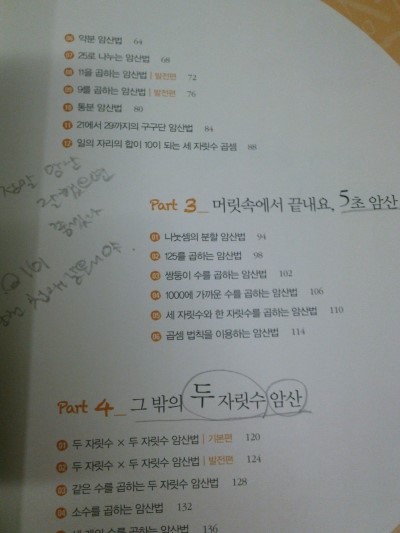 06 약분 암산법 64
07 25로 나누는 암산법 68
08 11을 곱하는 암산법 | 발전편 72
09 9를 곱하는 암산법 | 발전편 76
10 통분 암산법 80
11 21에서 29까지의 구구단 암산법 84
12 일의 자리의 합이 10이 되는 세 자릿수 곱셈 88
정말 암산
잘했으면
좋겠다
Part 3_ 머릿속에서 끝내요, 5초 암산
01 나눗셈의 분할 암산법 94
02 125를 곱하는 암산법 98
03 쌍둥이 수를 곱하는 암산법 102
04 1000에 가까운 수를 곱하는 암산법 106
05 세 자릿수와 한 자릿수를 곱하는 암산법 110
06 곱셈 법칙을 이용하는 암산법 114
Part 4_ 그 밖의 두 자릿수 암산
01 두 자릿수 × 두 자릿수 암산법 | 기본편 120
02 두 자릿수 × 두 자릿수 암산법 | 발전편 124
03 같은 수를 곱하는 두 자릿수 암산법 128
04 소수를 곱하는 암산법 132
05 세 개의 수를 곱하는 암산법 136